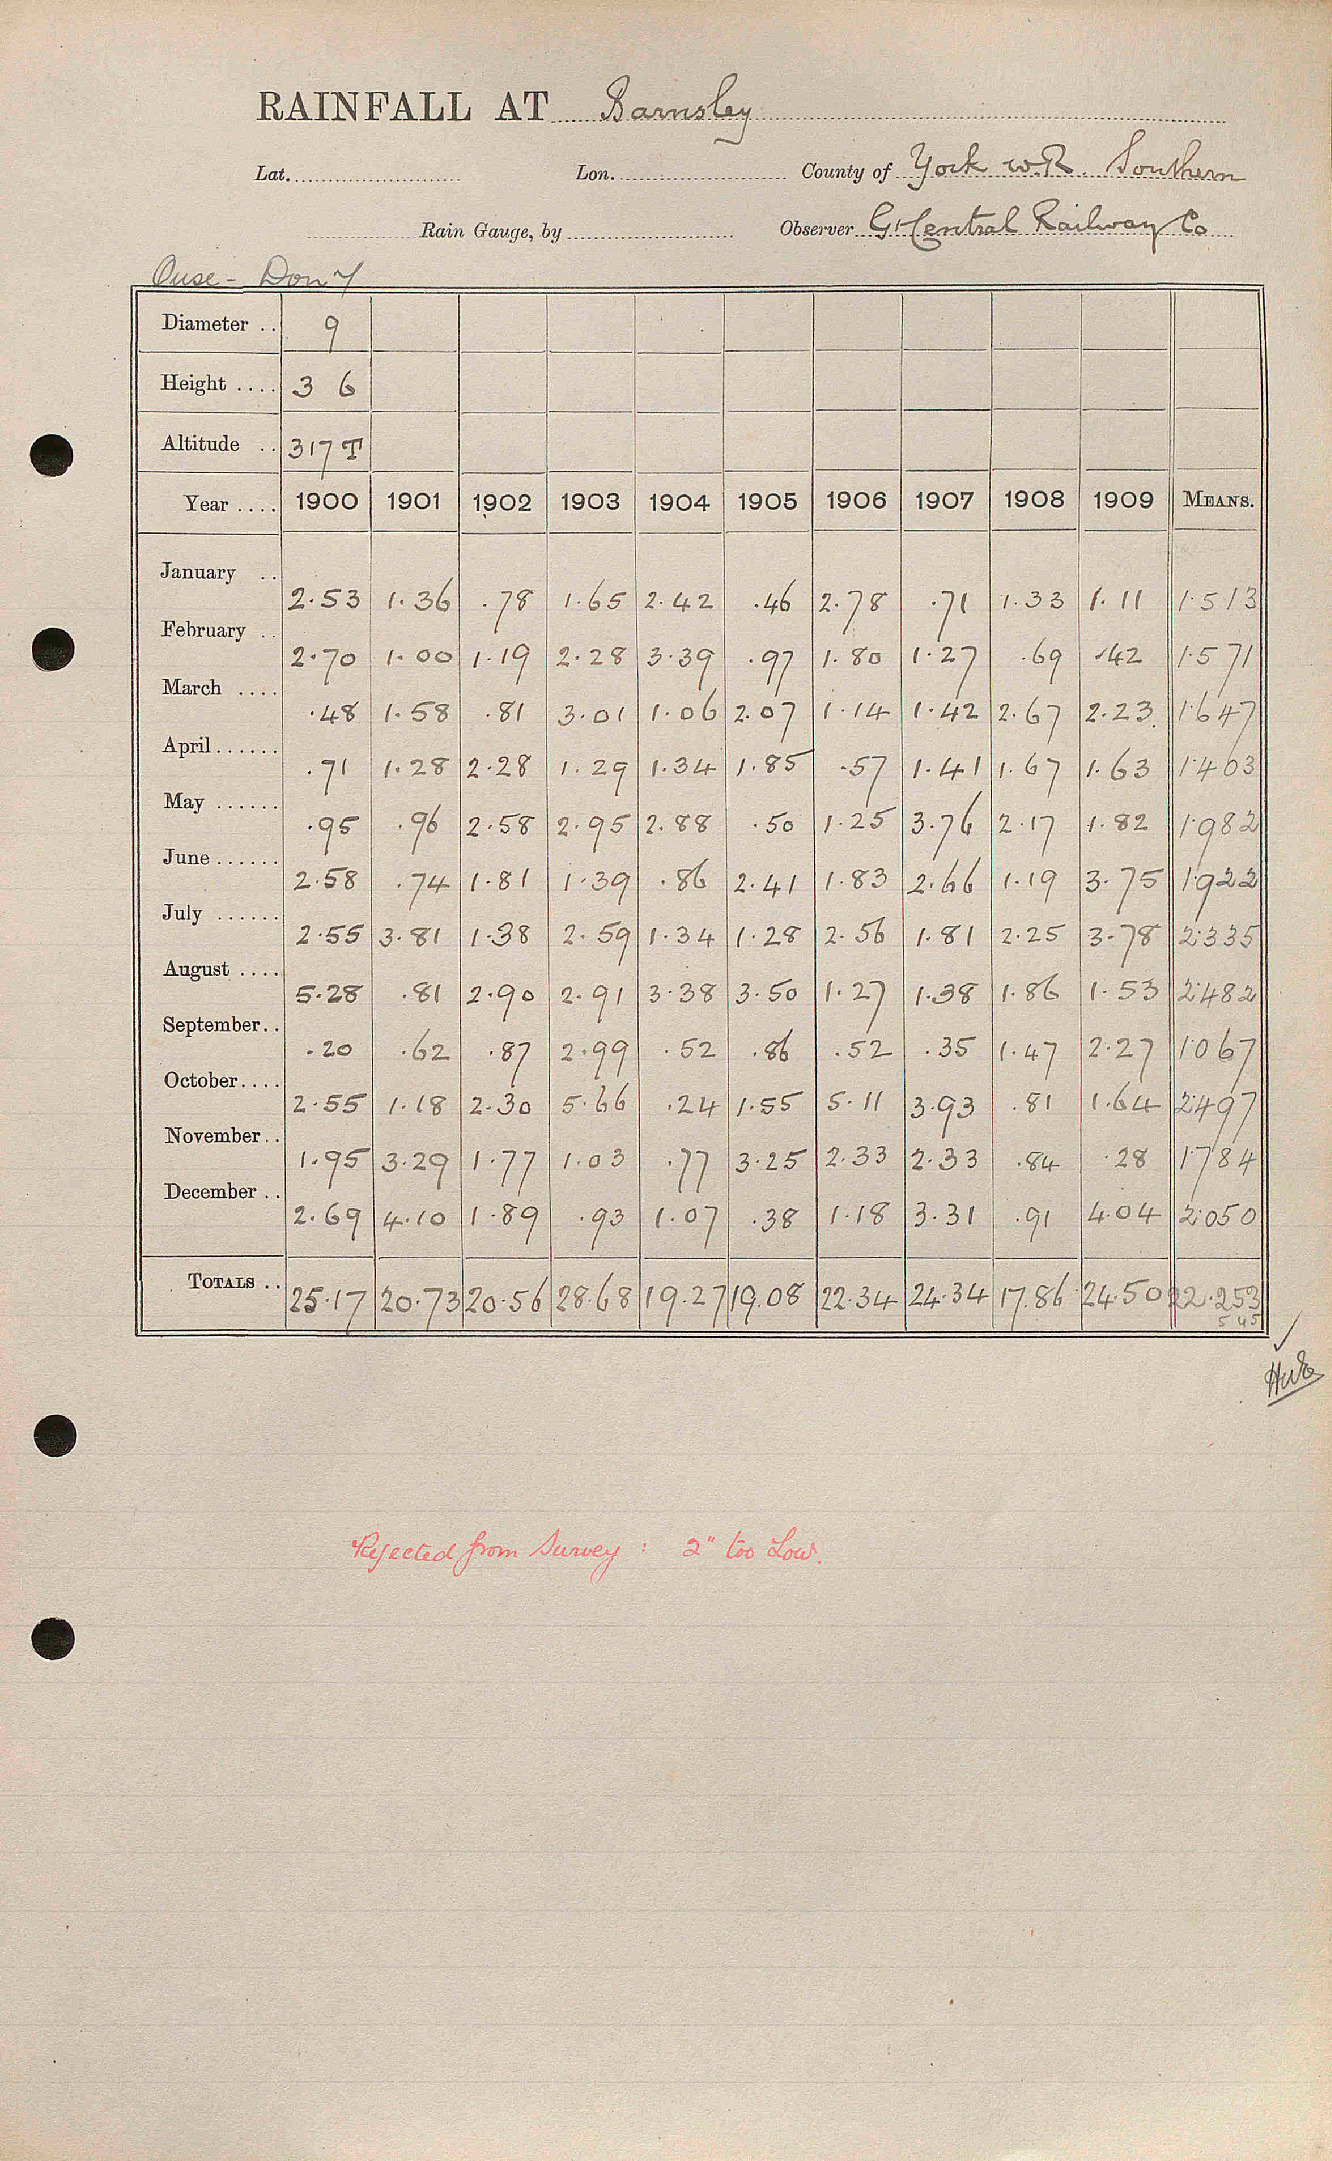 RAINFALL AT Barnsley
Lat. Lon. County of York W.R. Southern
Rain Gauge, by Observer Gt Central Railway Co
Ouse - Don
Diameter .. 9
Height .... 3 6
Altitude .. 317 T
Year .... 1900 1901 1902 1903 1904 1905 1906 1907 1908 1909 MEANS.
January .. 2.53 1.36 .78 1.65 2.42 .46 2.78 .71 1.33 1.11 1.513
February .. 2.70 1.00 1.19 2.28 3.39 .97 1.80 1.27 .69 .42 1.571
March .... .48 1.58 .81 3.01 1.06 2.07 1.14 1.42 2.67 2.23 1.647
April...... .71 1.28 2.28 1.29 1.34 1.85 .57 1.41 1.67 1.63 1.403
May ...... .95 .96 2.58 2.95 2.88 .50 1.25 3.76 2.17 1.82 1.982
June...... 2.58 .74 1.81 1.39 .86 2.41 1.83 2.66 1.19 3.75 1.922
July ...... 2.55 3.81 1.38 2.59 1.34 1.28 2.56 1.81 2.25 3.78 2.335
August .... 5.28 .81 2.90 2.91 3.38 3.50 1.27 1.38 1.86 1.53 2.482
September.. .20 .62 .87 2.99 .52 .86 .52 .35 1.47 2.27 1.067
October.... 2.55 1.18 2.30 5.66 .24 1.55 5.11 3.93 .81 1.64 2.497
November.. 1.95 3.29 1.77 1.03 .77 3.25 2.33 2.33 .84 .28 1.784
December .. 2.69 4.10 1.89 .93 1.07 .38 1.18 3.31 .91 4.04 2.050
TOTALS .. 25.17 20.73 20.56 28.68 19.27 19.08 22.34 24.34 17.86 24.50 22.253
5 45
Rejected from Survey : 2" too Low.